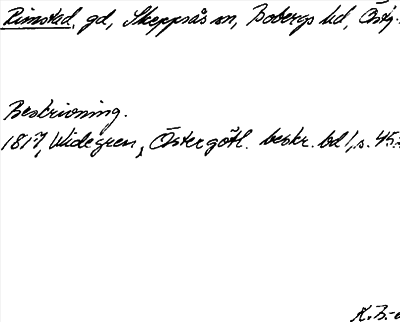 Rimstad, gd, Skeppsås sn, Bobergs hd, Östg.
Beskrivning.
1817, Widegren, Östergötl. beskr. bd 1, s. 45
K.B.-